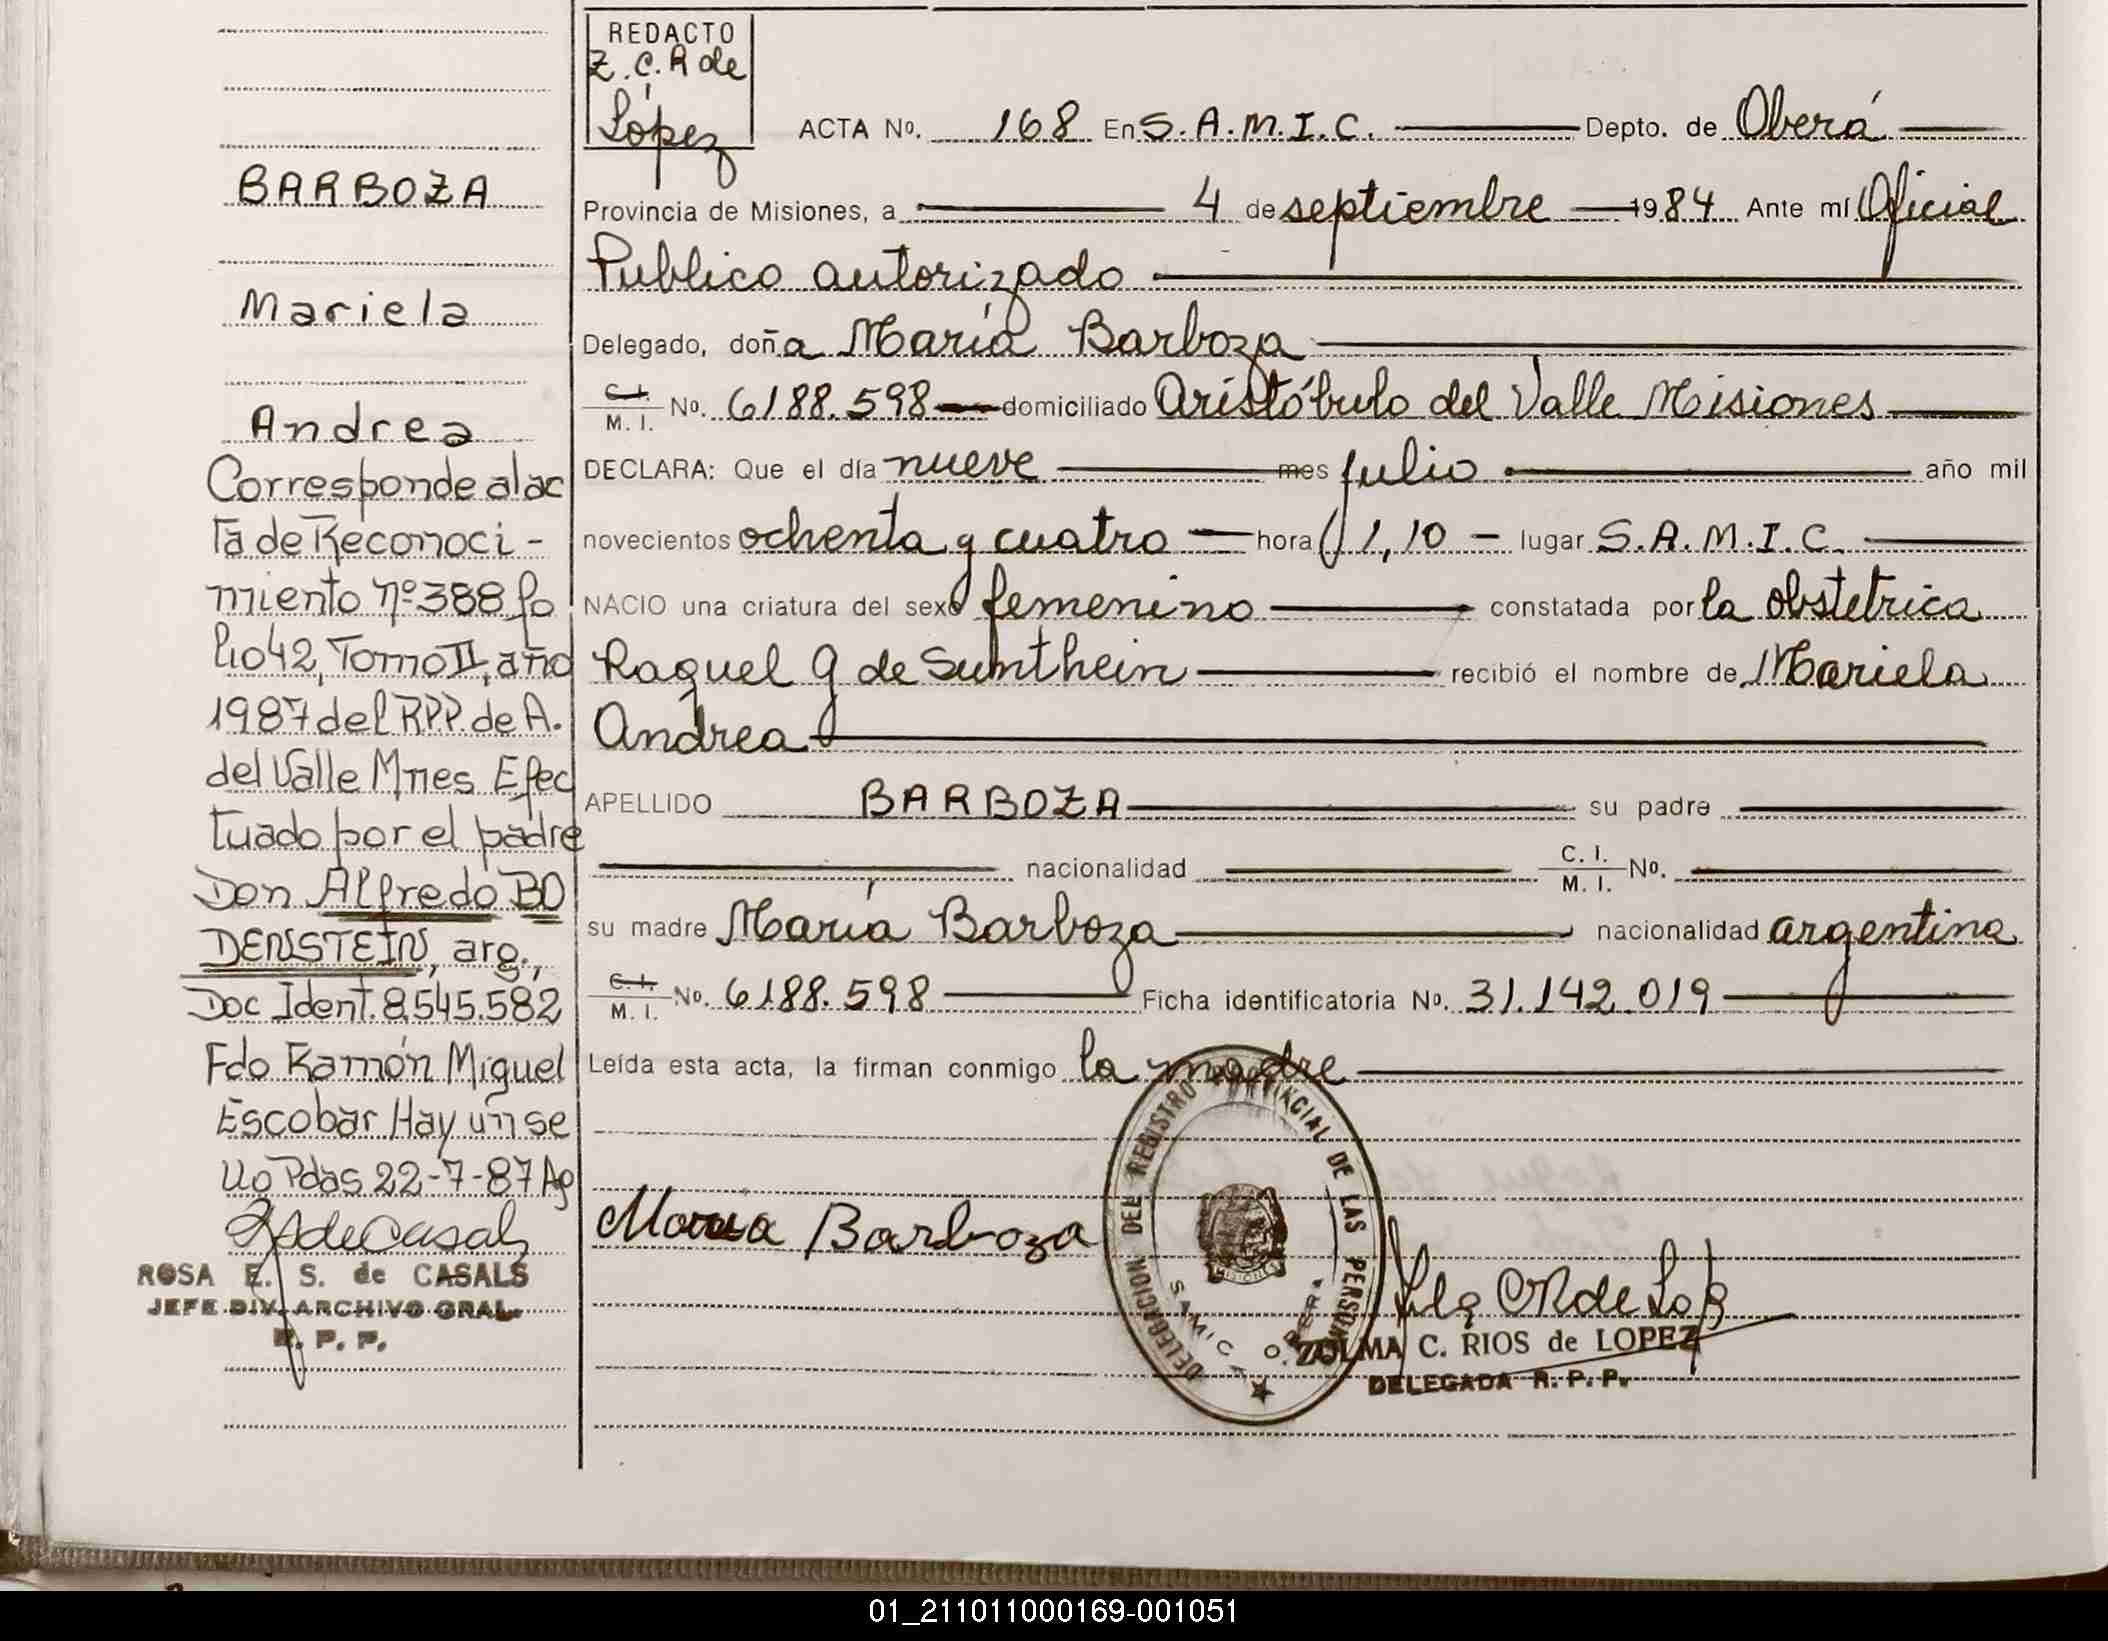 BARBOZA
Mariela
Andrea
Corresponde al ac
ta de Reconoci-
miento nº 388 fo
lio 42, Tomo II, año
1987 del RPP. de A.
del Valle Mnes Efec
tuado por el padre
Don Alfredo BO
DENSTEIN, arg.,
Doc Ident. 8.545.582
Fdo Ramón Miguel
Escobar Hay un se
llo Pdas 22-7-87 Ag
ROSA E. S. de CASALS
JEFE DIV. ARCHIVO GRAL.
R. P. P.
REDACTO
Z. C. R de
López
ACTA No. 168 En S.A.M.I.C. Depto. de Oberá
Provincia de Misiones, a 4 de septiembre 1984 Ante mí Oficial
Publico autorizado
Delegado, doña María Barboza
C. I. M. I. No. 6188.598 domiciliado Aristóbulo del Valle Misiones
DECLARA: Que el día nueve mes julio año mil
novecientos ochenta y cuatro hora 1,10 - lugar S.A.M.I.C.
NACIO una criatura del sexo femenino constatada por la obstetrica
Raquel G de Sunthein recibió el nombre de Mariela
Andrea
APELLIDO BARBOZA su padre
nacionalidad C. I. M. I. No.
su madre María Barboza nacionalidad argentina
C. I. M. I. No. 6188.598 Ficha identificatoria No. 31.142.019
Leída esta acta, la firman conmigo la madre
Maria Barboza
DELEGACION DEL REGISTRO PROVINCIAL DE LAS PERSONAS
MISIONES
SAMIC OBERA
ZULMA C. RIOS de LOPEZ
DELEGADA R. P. P.
01_211011000169-001051